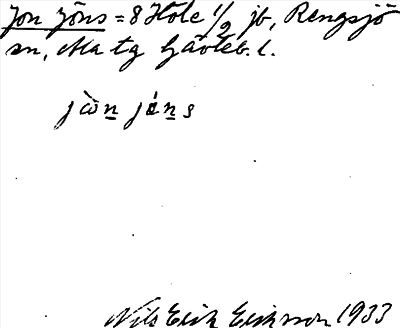 Jon Jöns = 8 Hole 1/2 jb, Rengsjö
sn, Ala tg Gävleb. l.
jòn jón s
Nils Erik Eriksson 1933